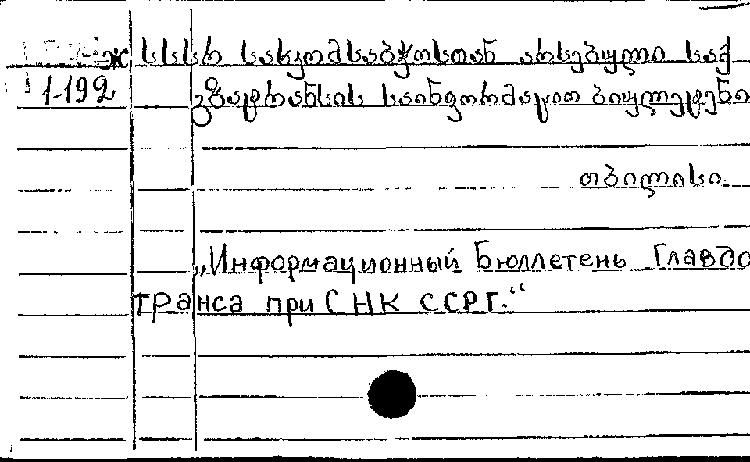 სსსრ სახკომსაბჭოსთან არსებული საქ
1-192 გზატრანსის საინფორმაციო ბიულეტენი
თბილისი.
„Информационный Бюллетень Главдо
транса при СНК ССРГ.“